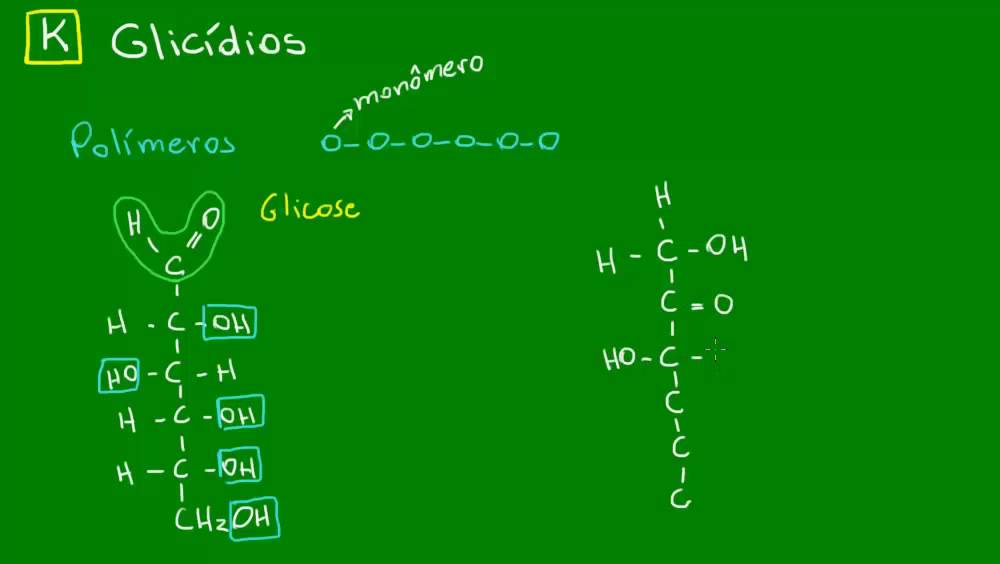 K Glicídios
monômero
Polímeros O-O-O-O-O-O
Glicose
H O
C
H - C - OH
HO - C - H
H - C - OH
H - C - OH
CH₂OH
H
H - C - OH
C = O
HO - C -
C
C
C